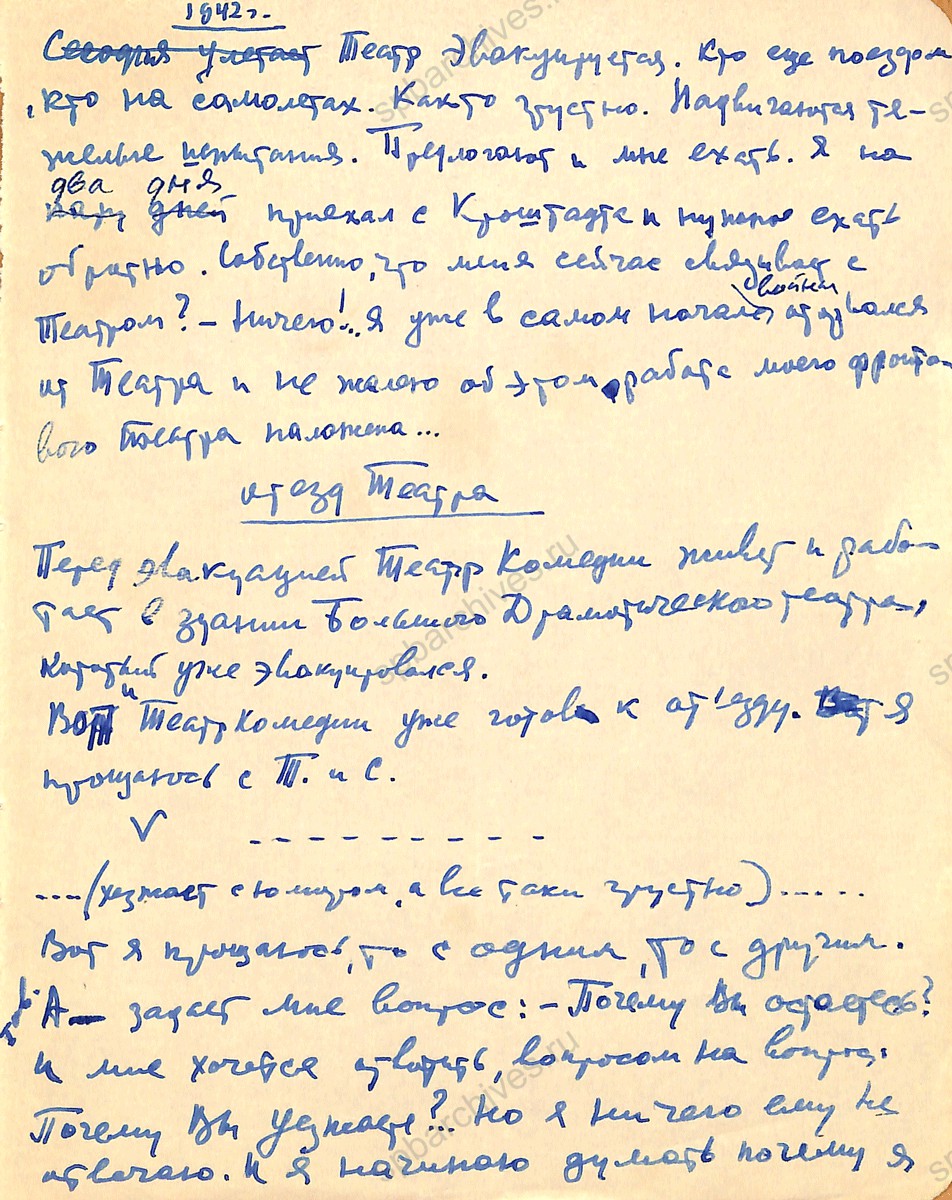 1942 г.
Сегодня улетает Театр Эвакуируется. Кто еще поездом
, кто на самолетах. Как-то грустно. Надвигаются тя-
желые испытания. Предлогают и мне ехать. Я на
два дня
пару дней приехал с Кронштадта и нужно ехать
обратно. Собственно, что меня сейчас связывает с
войны
Театром? – Ничего!.. Я уже в самом начале оторвался
от Театра и не жалею об этом, работа моего фронто-
вого Театра налажена...
отезд Театра
Перед эвакуацией Театр Комедии живет и рабо-
тает в здании Большого Драматического театра,
который уже эвакуировался.
и
Вот Театр Комедии уже готов к от'езду. Вот Я
прощаюсь с Т. и С.
V ----------
....(уезжает с юмором, а все таки грустно)......
Вот я прощаюсь, то с одним, то с другим.
А– задает мне вопрос: – Почему Вы остаетесь?
И мне хочется ответить, вопросом на вопрос:
Почему Вы уезжаете?... Но я ничего ему не
отвечаю. И я начинаю думать почему я
spbarchives.ru
spbarchives.ru
spbarchives.ru
spbarchives.ru